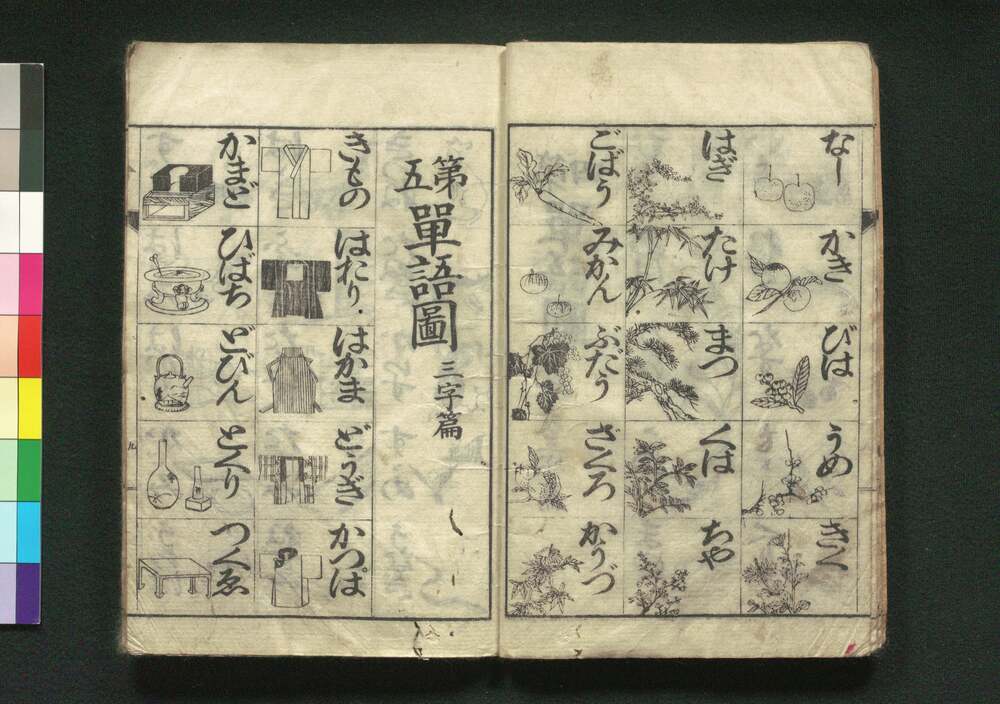 なし
かき
びは
うめ
きく
はぎ
たけ
まつ
くは
ちや
ごばう
みかん
ぶだう
ざくろ
かうづ
第五 單語圖 三字篇
きもの
はおり
はかま
どうぎ
かつぱ
かまど
ひばち
どびん
とくり
つくゑ